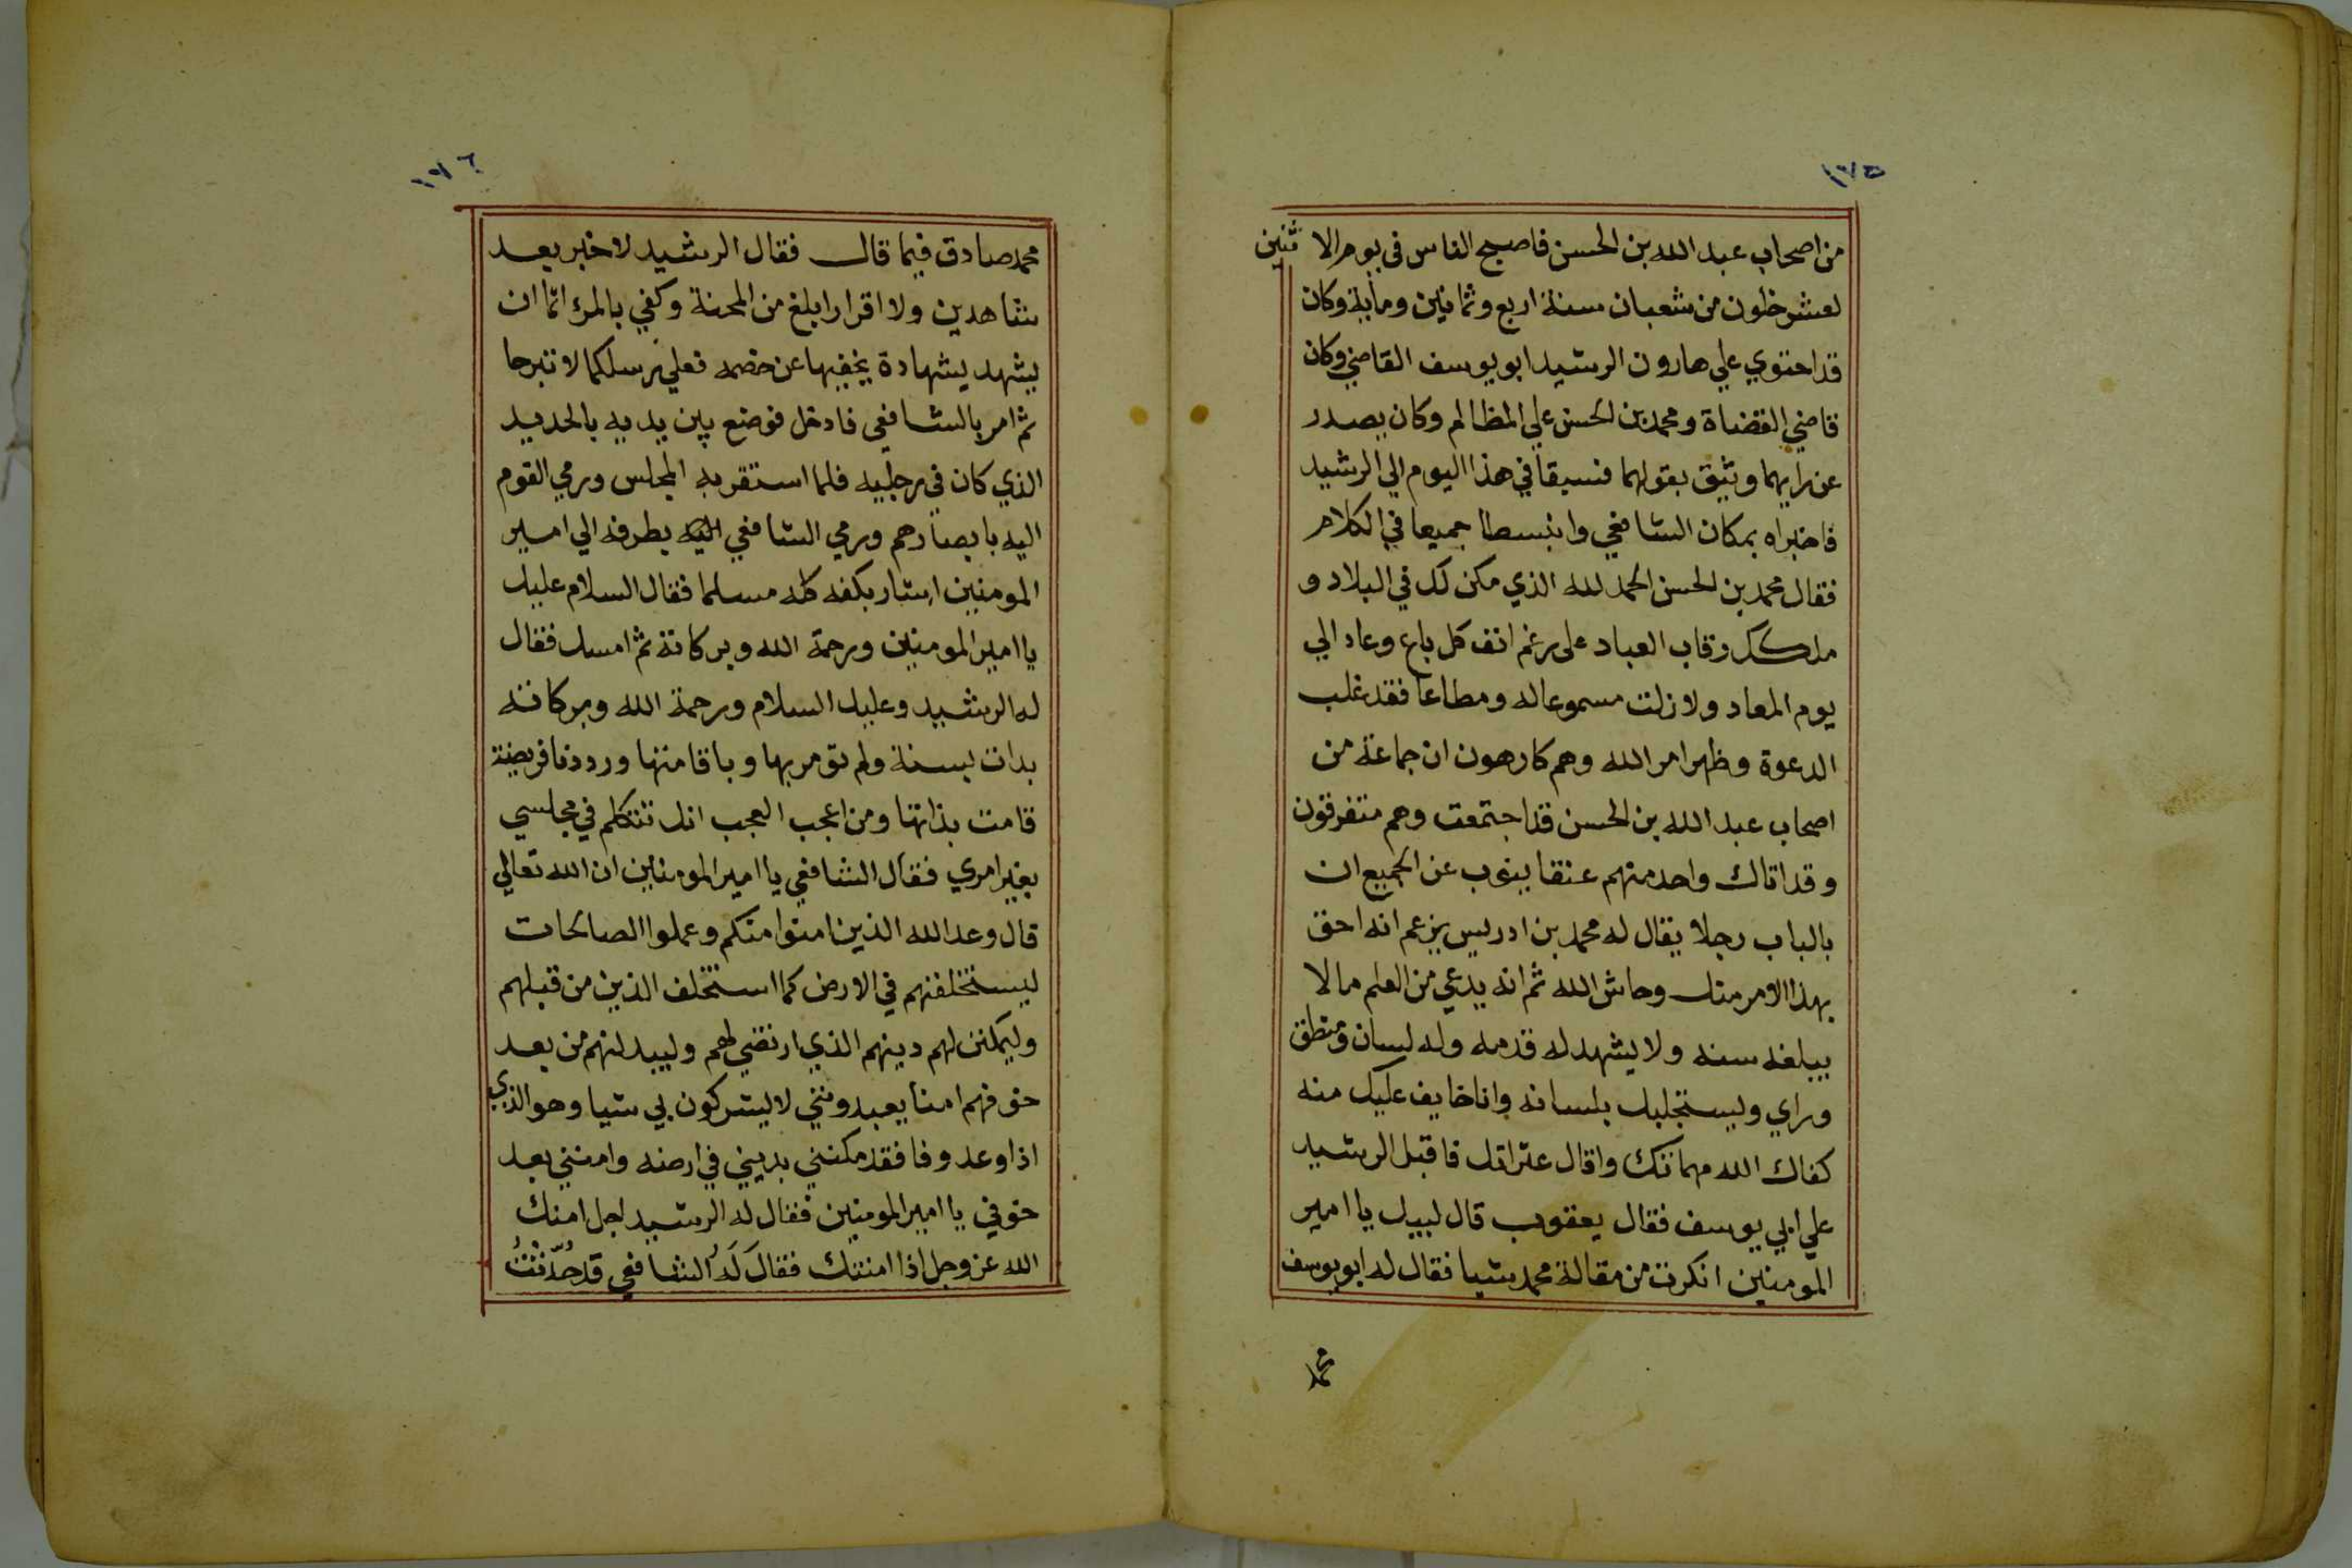 ١٧٥
من اصحاب عبد الله بن الحسن فاصبح الناس في يوم الاثنين
لعشر خلون من شعبان سنة اربع وثمانين ومايه وكان
قد احتوي علي هارون الرشيد ابو يوسف القاضي وكان
قاضي القضاة ومحمد بن الحسن علي المظالم وكان يصدر
عن رايهما ويثق بقولهما فسبقا في هذا اليوم الي الرشيد
فاخبراه بمكان الشافعي وانبسطا جميعا في الكلام
فقال محمد بن الحسن الحمد لله الذي مكن لك في البلاد و
ملكك رقاب العباد علي رغم انف كل باغ وعاد الي
يوم المعاد ولا زلت مسموعا له ومطاعا فقد غلب
الدعوة وظهر امر الله وهم كارهون ان جماعة من
اصحاب عبد الله بن الحسن قد اجتمعت وهم متفرقون
وقد اتاك واحد منهم عنقا ينوب عن الجميع ان
بالباب رجلا يقال له محمد بن ادريس يزعم انه احق
بهذا الامر منك وحاش الله ثم انه يدعي من العلم ما لا
يبلغه سنه ولا يشهد له قدمه وله لسان ومنطق
وراي ويستجلبك بلسانه وانا خايف عليك منه
كفاك الله مهماتك واقال عثراتك فاقبل الرشيد
علي ابي يوسف فقال يعقوب قال لبيك يا امير
المومنين انكرت من مقالة محمد شيا فقال له ابو يوسف
محمد
١٧٦
محمد صادق فيما قال فقال الرشيد لا خبر بعد
شاهدين ولا اقرار ابلغ من المحنة وكفي بالمرء اثما ان
يشهد بشهادة يخفيها عن خصمه فعلي رسلكما لا تبرحا
ثم امر بالشافعي فادخل فوضع بين يديه بالحديد
الذي كان في رجليه فلما استقر به المجلس ورمي القوم
اليه بابصارهم ورمي الشافعي بطرفه الي امير
المومنين اشار بكفه كله مسلما فقال السلام عليك
يا امير المومنين ورحمة الله وبركاته ثم امسك فقال
له الرشيد وعليك السلام ورحمة الله وبركاته
بدات بسنة ولم تومر بها وباقامتها ورددنا فريضة
قامت بذاتها ومن اعجب العجب انك تتكلم في مجلسي
بغير امري فقال الشافعي يا امير المومنين ان الله تعالي
قال وعد الله الذين امنوا منكم وعملوا الصالحات
ليستخلفنهم في الارض كما استخلف الذين من قبلهم
وليمكنن لهم دينهم الذي ارتضي لهم وليبدلنهم من بعد
خوفهم امنا يعبدونني لا يشركون بي شيا وهو الذي
اذا وعد وفا فقد مكنني بديني في ارضه وامنني بعد
خوفي يا امير المومنين فقال له الرشيد اجل امنك
الله عز وجل اذا امنتك فقال له الشافعي قد حُدّثتُ